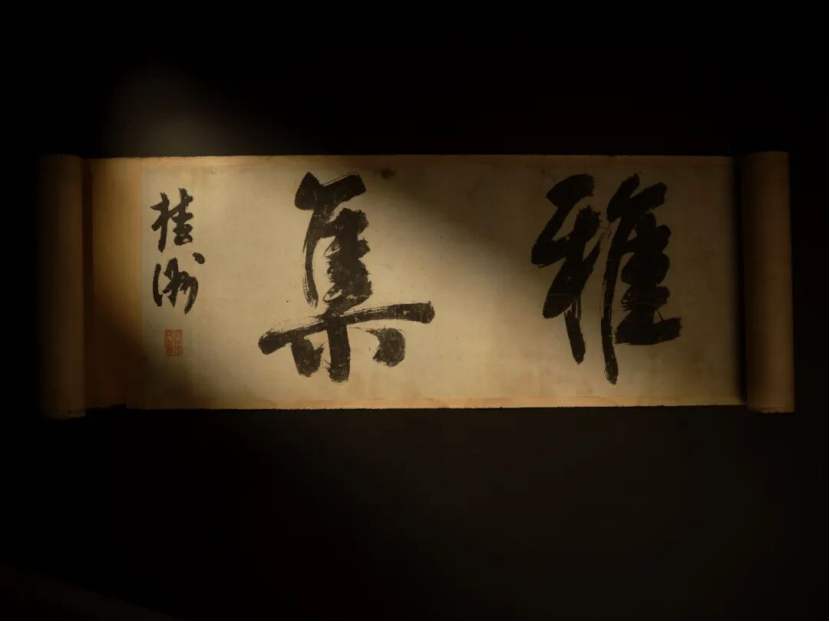 雅集
桂洲